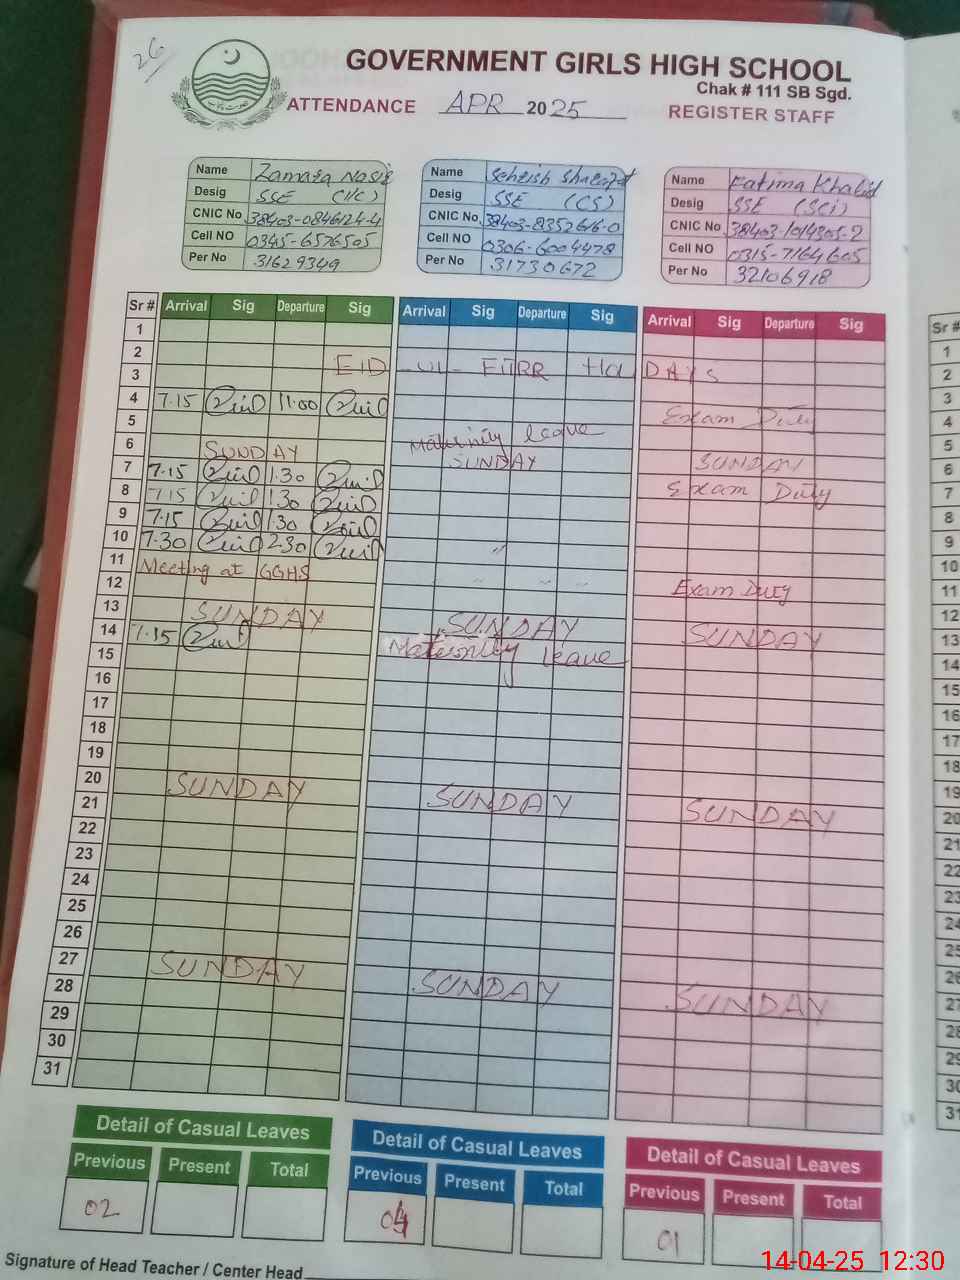 26
GOVERNMENT GIRLS HIGH SCHOOL
Chak # 111 SB Sgd.
ATTENDANCE APR 2025 REGISTER STAFF
Name Zamara Nasir
Desig SSE (I/C)
CNIC No 38403-0846124-4
Cell NO 0345-6576505
Per No 31629349
Name Sehrish
Desig SSE (CS)
CNIC No 38403-8352616-0
Cell NO 0306-6004478
Per No 31730672
Name Fatima Khalid
Desig SSE (Sci)
CNIC No 38403-1014305-2
Cell NO 0315-7164605
Per No 32106918
Sr # Arrival Sig Departure Sig Arrival Sig Departure Sig Arrival Sig Departure Sig Sr #
1
2
3 EID -UL- FITRR HOLIDAYS
4 7.15 11.00 Exam Duty
5 Maternity leave
6 SUNDAY SUNDAY SUNDAY
7 7.15 1.30 Exam Duty
8 7.15 1.30
9 7.15 1.30
10 7.30 2.30 "
11 Meeting at GGHS
12 " " " " Exam Duty
13 SUNDAY SUNDAY SUNDAY
14 7.15 Maternity leave
15
16
17
18
19
20 SUNDAY SUNDAY SUNDAY
21
22
23
24
25
26
27 SUNDAY SUNDAY SUNDAY
28
29
30
31
Detail of Casual Leaves Detail of Casual Leaves Detail of Casual Leaves
Previous Present Total Previous Present Total Previous Present Total
02 04 01
Signature of Head Teacher / Center Head
14-04-25 12:30